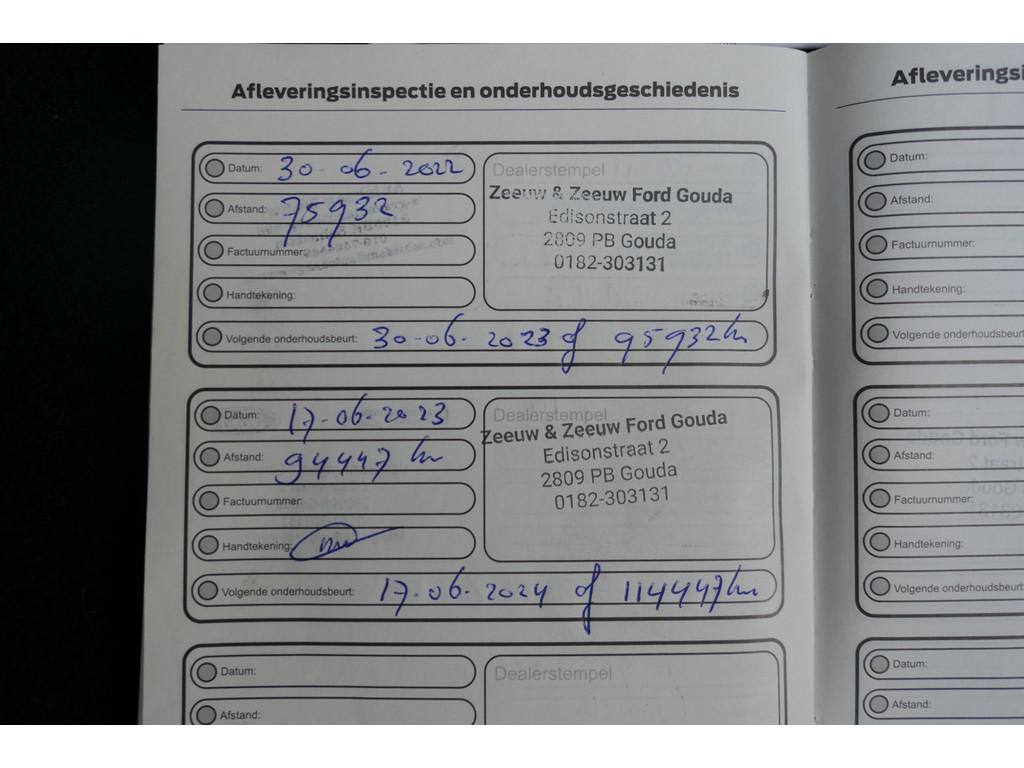 Afleveringsinspectie en onderhoudsgeschiedenis
Datum: 30-06-2022
Afstand: 75932
Factuurnummer:
Handtekening:
Dealerstempel
Zeeuw & Zeeuw Ford Gouda
Edisonstraat 2
2809 PB Gouda
0182-303131
Volgende onderhoudsbeurt: 30-06-2023 of 95932km
Datum: 17-06-2023
Afstand: 94447 km
Factuurnummer:
Handtekening:
Dealerstempel
Zeeuw & Zeeuw Ford Gouda
Edisonstraat 2
2809 PB Gouda
0182-303131
Volgende onderhoudsbeurt: 17-06-2024 of 114447km
Datum:
Afstand:
Dealerstempel
Afleveringsi
Datum:
Afstand:
Factuurnummer:
Handtekening:
Volgende onderhoudsbeurt
Datum:
Afstand:
Factuurnummer:
Handtekening:
Volgende onderhoudsbeurt
Datum:
Afstand: